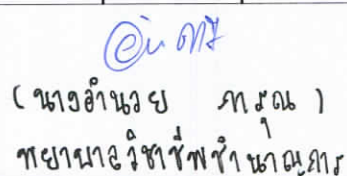 (นางอำนวย ภารุณ)
พยาบาลวิชาชีพชำนาญการ